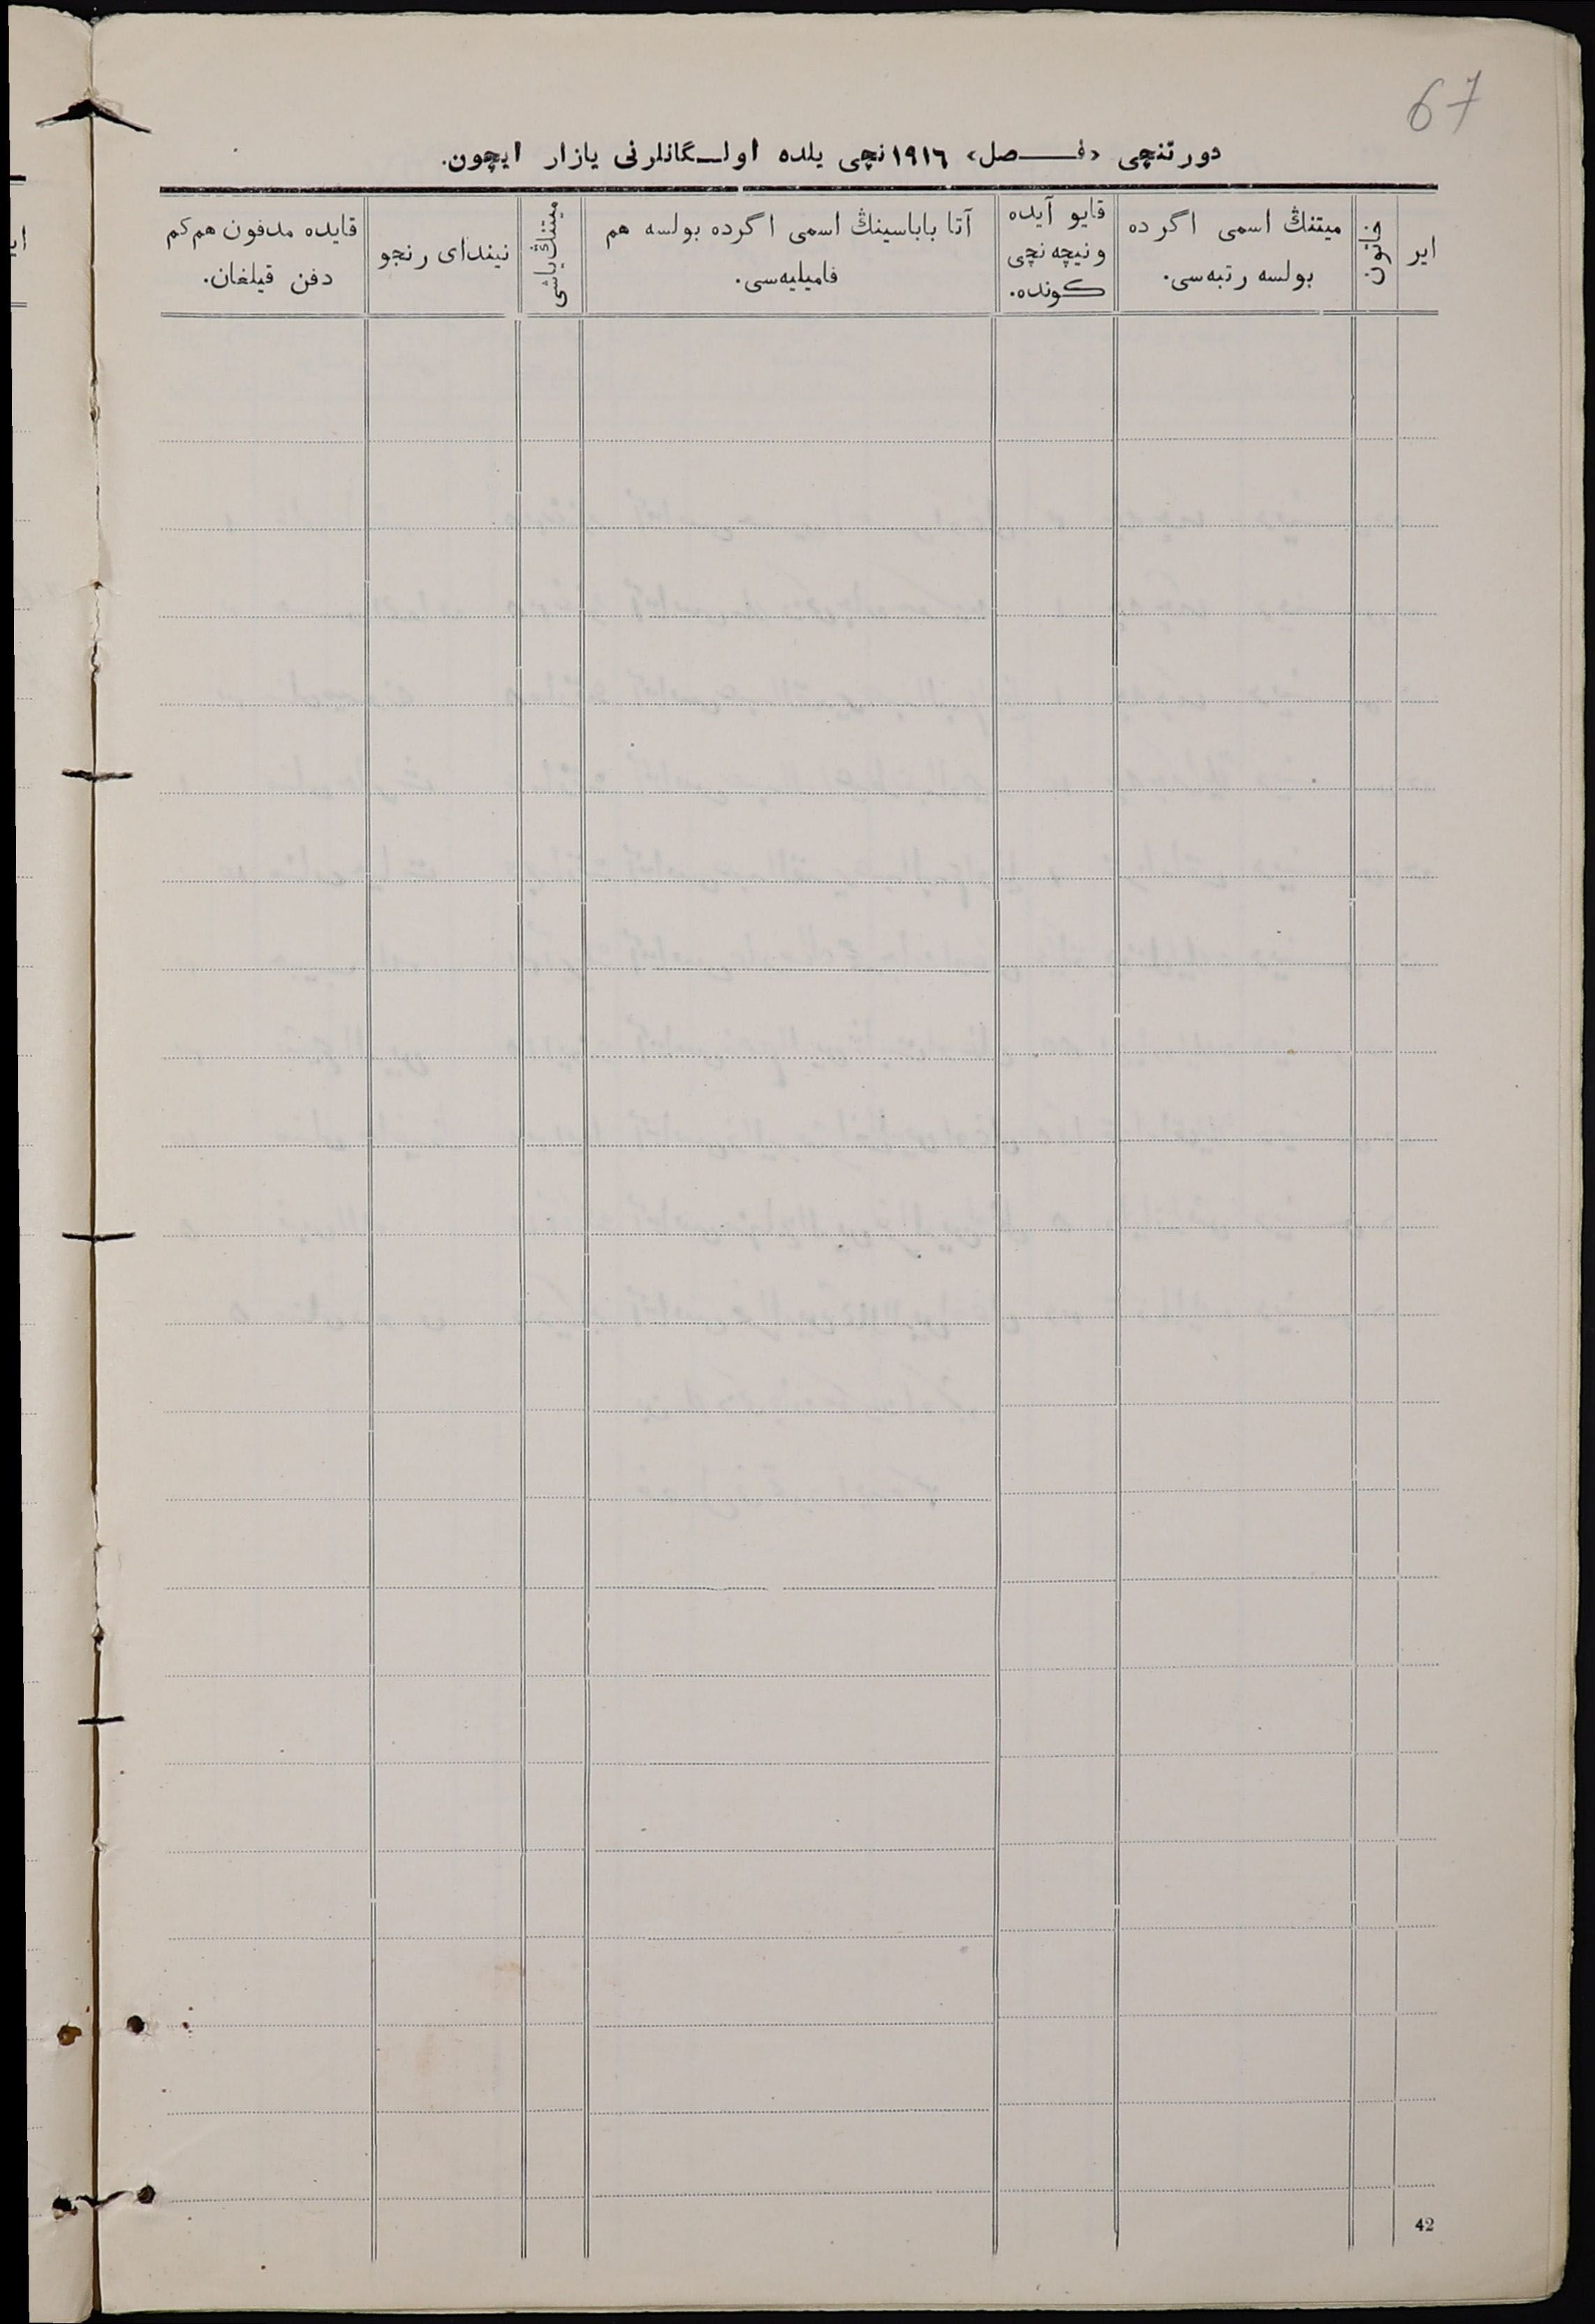 67
دورتنچی «فـــصل» ١٩١٦نچی یلده اولـــگانلرنی یازار ایچون.
ایر
خاتون
میتنڭ اسمی اگرده
بولسه رتبه‌سی.
قایو آیده
ونیچه نچی
کونده.
آتا باباسینڭ اسمی اگرده بولسه هم
فامیلیه‌سی.
میتنڭ یاشی
نیندای رنجو
قایده مدفون هم کم
دفن قیلغان.
42